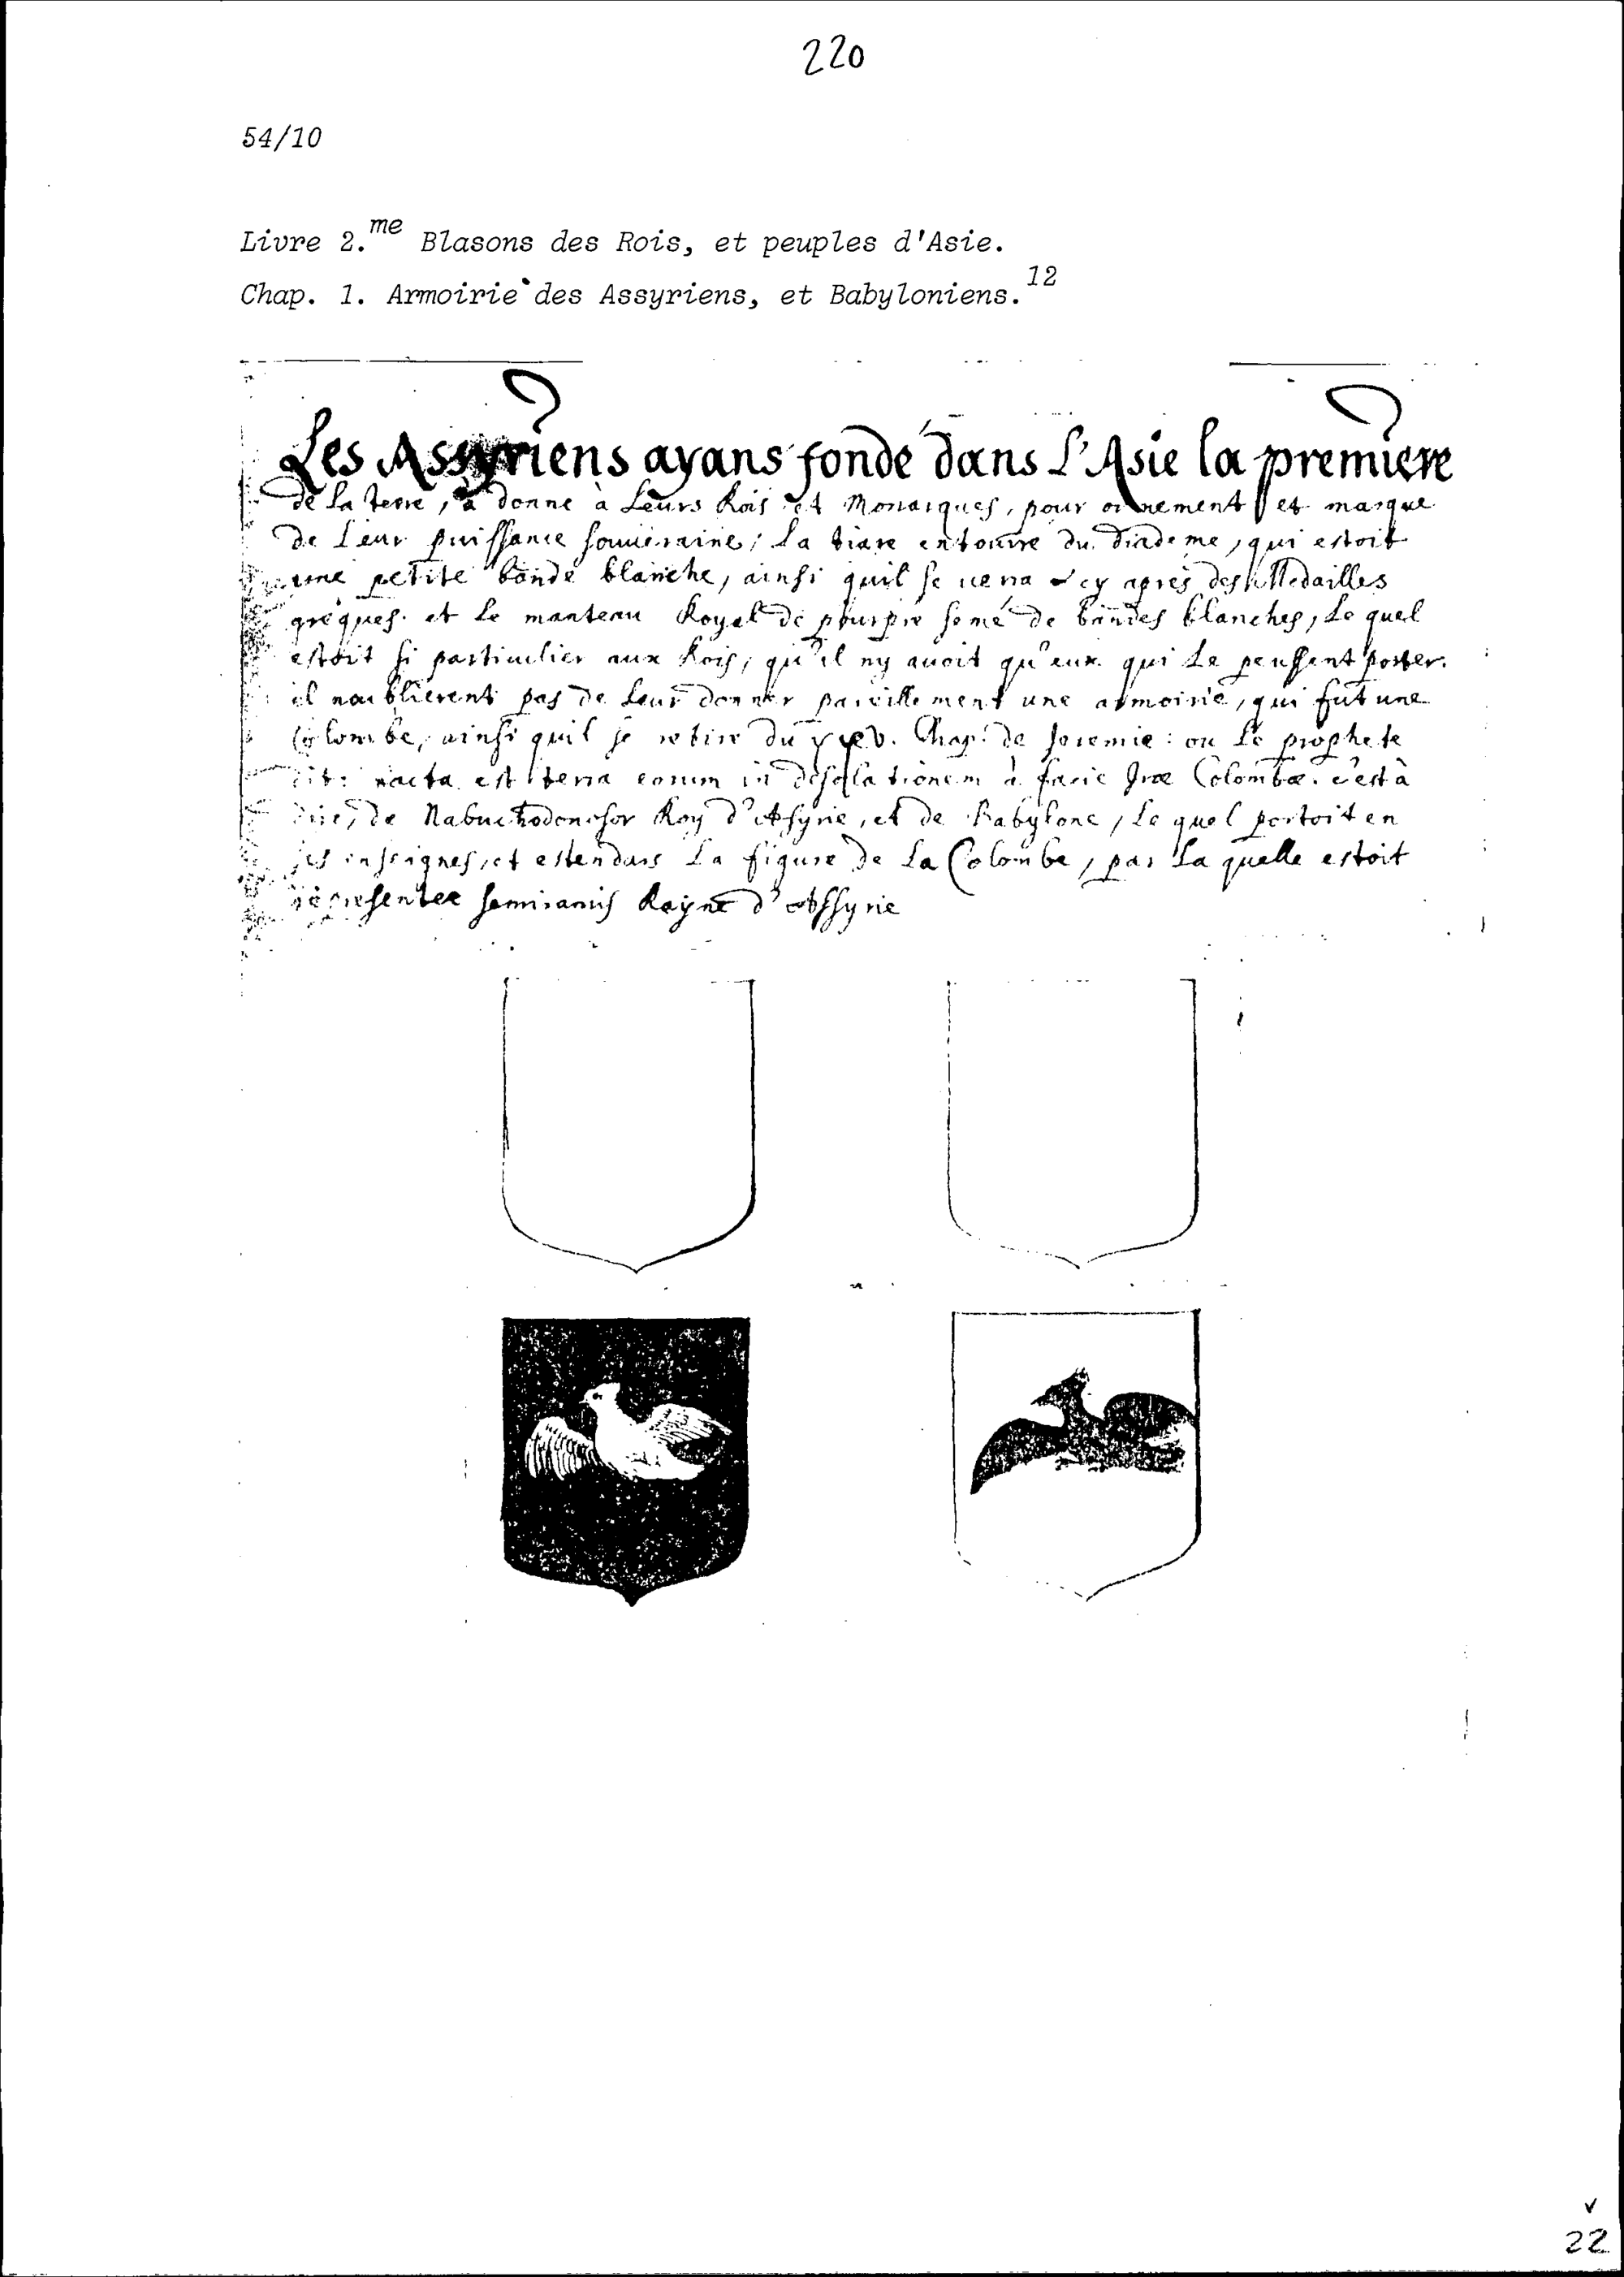 220
54/10
Livre 2.me Blasons des Rois, et peuples d'Asie.
Chap. 1. Armoirie des Assyriens, et Babyloniens.12
Les Assyriens ayans fondé dans L'Asie la premiere
de La terre, a donné à Leurs Rois et Monarques, pour ornement et marque
de Leur puissance souueraine, La tiare entourre du diademe, qui estoit
une petite bande blanche, ainsi quil se uerra cy apres des Medailles
greques. et Le manteau Royal de pourpre semé de bandes blanches, Le quel
estoit si particulier aux Rois, qu'il ny auoit qu'eux qui Le peussent porter.
il noublierent pas de Leur donner pareillement une armoirie, qui fut une
Colombe, ainsi quil se retire du xxv. Chap. de Jeremie: ou Le prophete
dit: facta est terra eorum in desolationem à facie Iræ Colombæ. c'est à
dire, de Nabuchodonosor Roy d'Assyrie, et de Babylone, Le quel portoit en
ses enseignes, et estendars La figure de La Colombe, par La quelle estoit
representee semiramis Rayne d'Assyrie
22